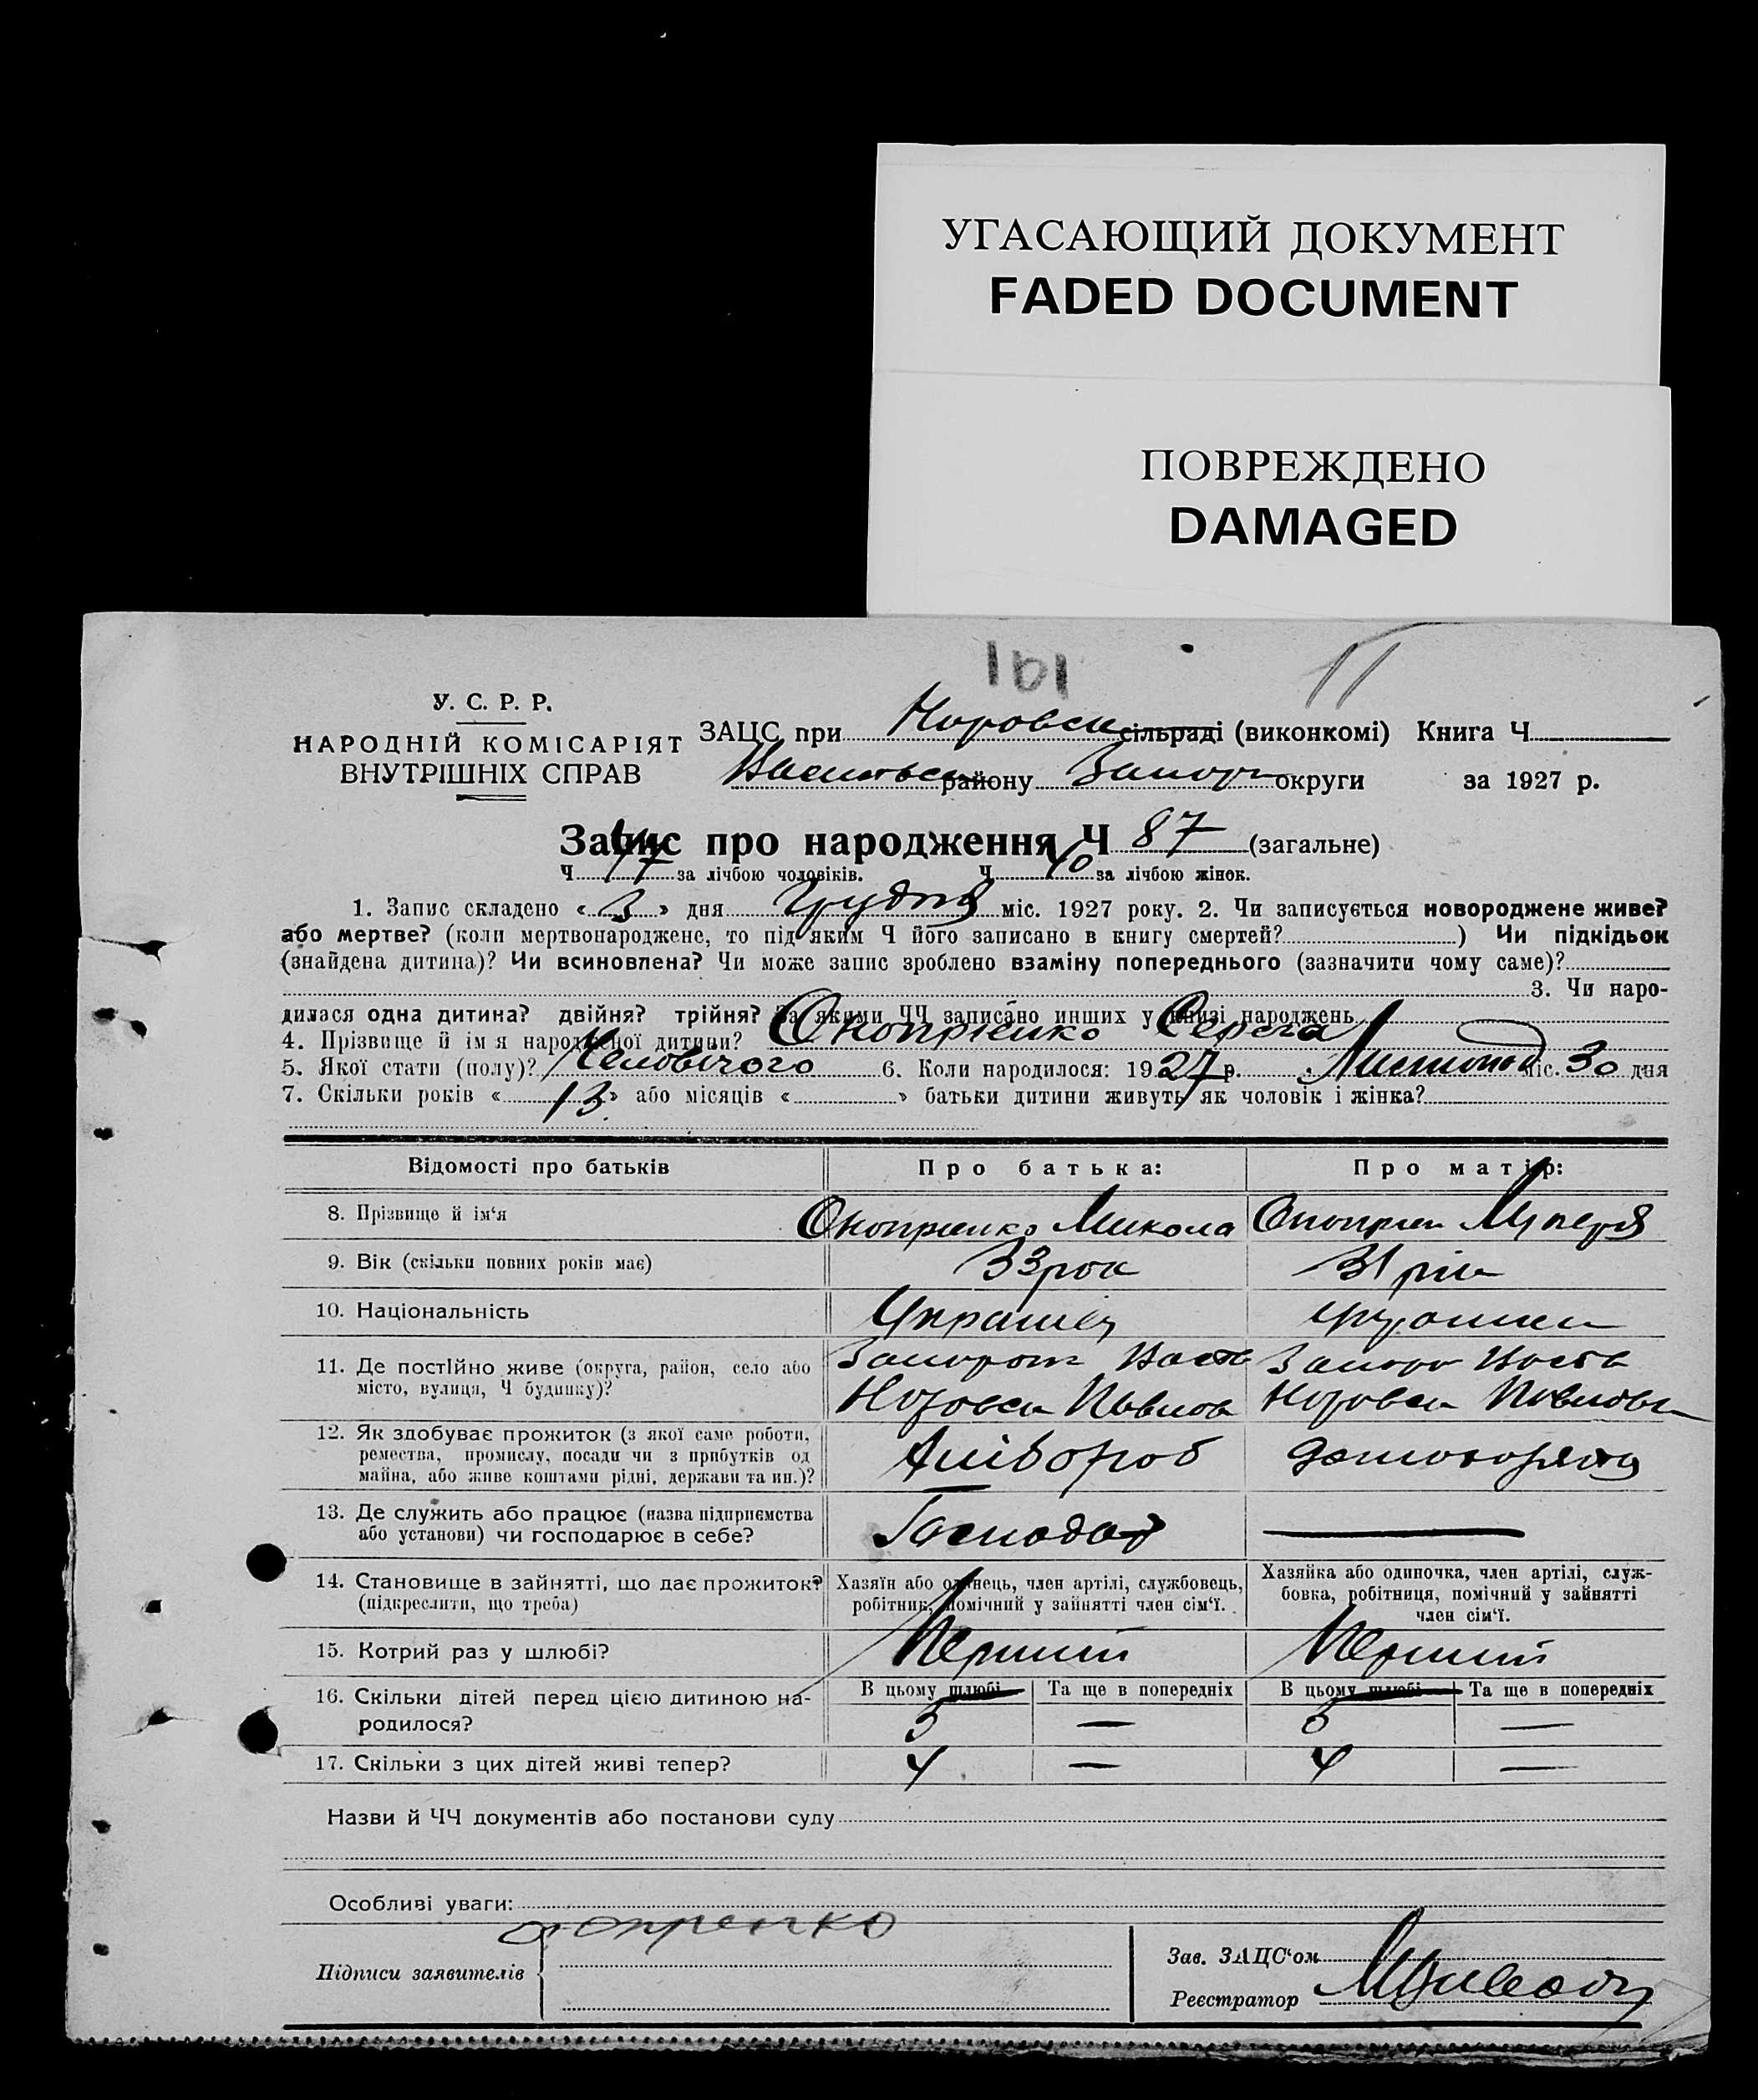 УГАСАЮЩИЙ ДОКУМЕНТ
FADED DOCUMENT
ПОВРЕЖДЕНО
DAMAGED
101 11
У. С. Р. Р.
НАРОДНІЙ КОМІСАРІЯТ
ВНУТРІШНІХ СПРАВ
ЗАЦС при сільраді (виконкомі) Книга Ч
району Запор округи за 1927 р.
Запис про народження Ч 87 (загальне)
Ч 47 за лічбою чоловіків. Ч 40 за лічбою жінок.
1. Запис складено « 3 » дня Грудня міс. 1927 року. 2. Чи записується новороджене живе?
або мертве? (коли мертвонароджене, то під яким Ч його записано в книгу смертей? ) Чи підкідьок
(знайдена дитина)? Чи всиновлена? Чи може запис зроблено взаміну попереднього (зазначити чому саме)?
3. Чи наро-
дилася одна дитина? двійня? трійня? За якими ЧЧ записано инших у книзі народжень
4. Прізвище й ім я народженої дитини? Оноприенко Серега
5. Якої стати (полу)? Человічого 6. Коли народилося: 1927 р. Листопад міс. 30 дня
7. Скільки років « 13 » або місяців « » батьки дитини живуть як чоловік і жінка?
Відомості про батьків
Про батька:
Про матір:
8. Прізвище й ім‘я
Оноприенко Микола
Оноприен
9. Вік (скільки повних років має)
33 рок
31 рік
10. Національність
Украінец
11. Де постійно живе (округа, район, село або
місто, вулиця, Ч будинку)?
12. Як здобуває прожиток (з якої саме роботи,
ремества, промислу, посади чи з прибутків од
майна, або живе коштами рідні, держави та ин.)?
Хлібороб
13. Де служить або працює (назва підприємства
або установи) чи господарює в себе?
Господар
14. Становище в зайнятті, що дає прожиток?
(підкреслити, що треба)
Хазяїн або одинець, член артілі, службовець,
робітник, помічний у зайнятті член сім‘ї.
Хазяйка або одиночка, член артілі, служ-
бовка, робітниця, помічний у зайнятті
член сім‘ї.
15. Котрий раз у шлюбі?
Перший
Перший
16. Скільки дітей перед цією дитиною на-
родилося?
В цьому шлюбі
Та ще в попередніх
В цьому шлюбі
Та ще в попередніх
5 — 5 —
17. Скільки з цих дітей живі тепер?
4 — 4 —
Назви й ЧЧ документів або постанови суду
Особливі уваги:
Підписи заявителів
Зав. ЗАЦС‘ом
Реєстратор